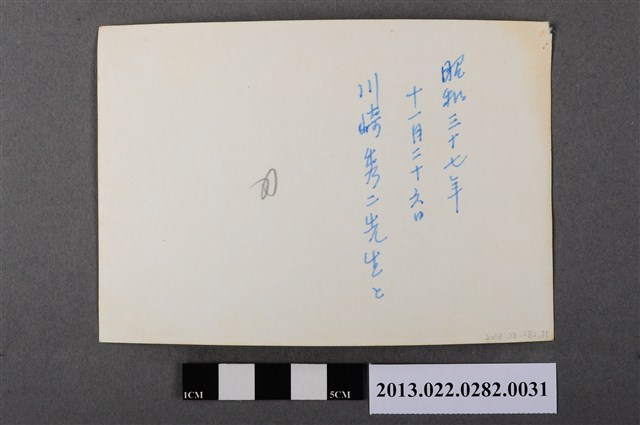 昭和三十七年
十一月二十六日
川崎秀二先生と
1CM
5CM
2013.022.0282.0031